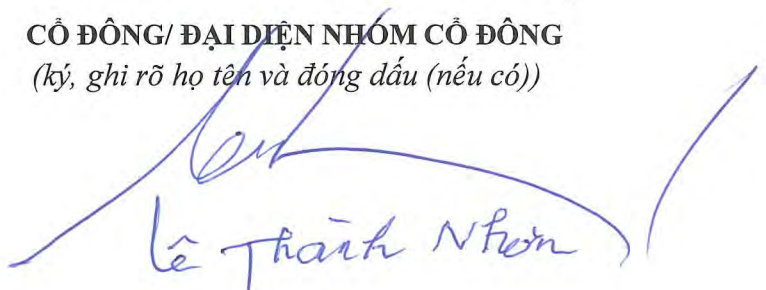 CỔ ĐÔNG/ ĐẠI DIỆN NHÓM CỔ ĐÔNG
(ký, ghi rõ họ tên và đóng dấu (nếu có))
Lê Thành Nhơn